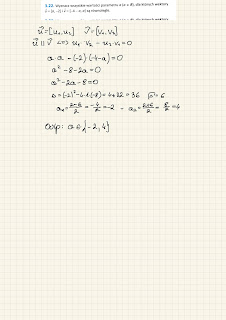 3.22. Wyznacz wszystkie wartości parametru a (a ∈ R), dla których wektory
u⃗ = [u₁, u₂]   v⃗ = [v₁, v₂]
u⃗ || v⃗ <=> u₁ · v₂ - u₂ · v₁ = 0
a · a - (-2) · (-4-a) = 0
a² - 8 - 2a = 0
a² - 2a - 8 = 0
Δ = (-2)² - 4 · 1 · (-8) = 4 + 32 = 36   √Δ = 6
a₁ = (2-6)/2 = -4/2 = -2   a₂ = (2+6)/2 = 8/2 = 4
Odp: a ∈ {-2, 4}